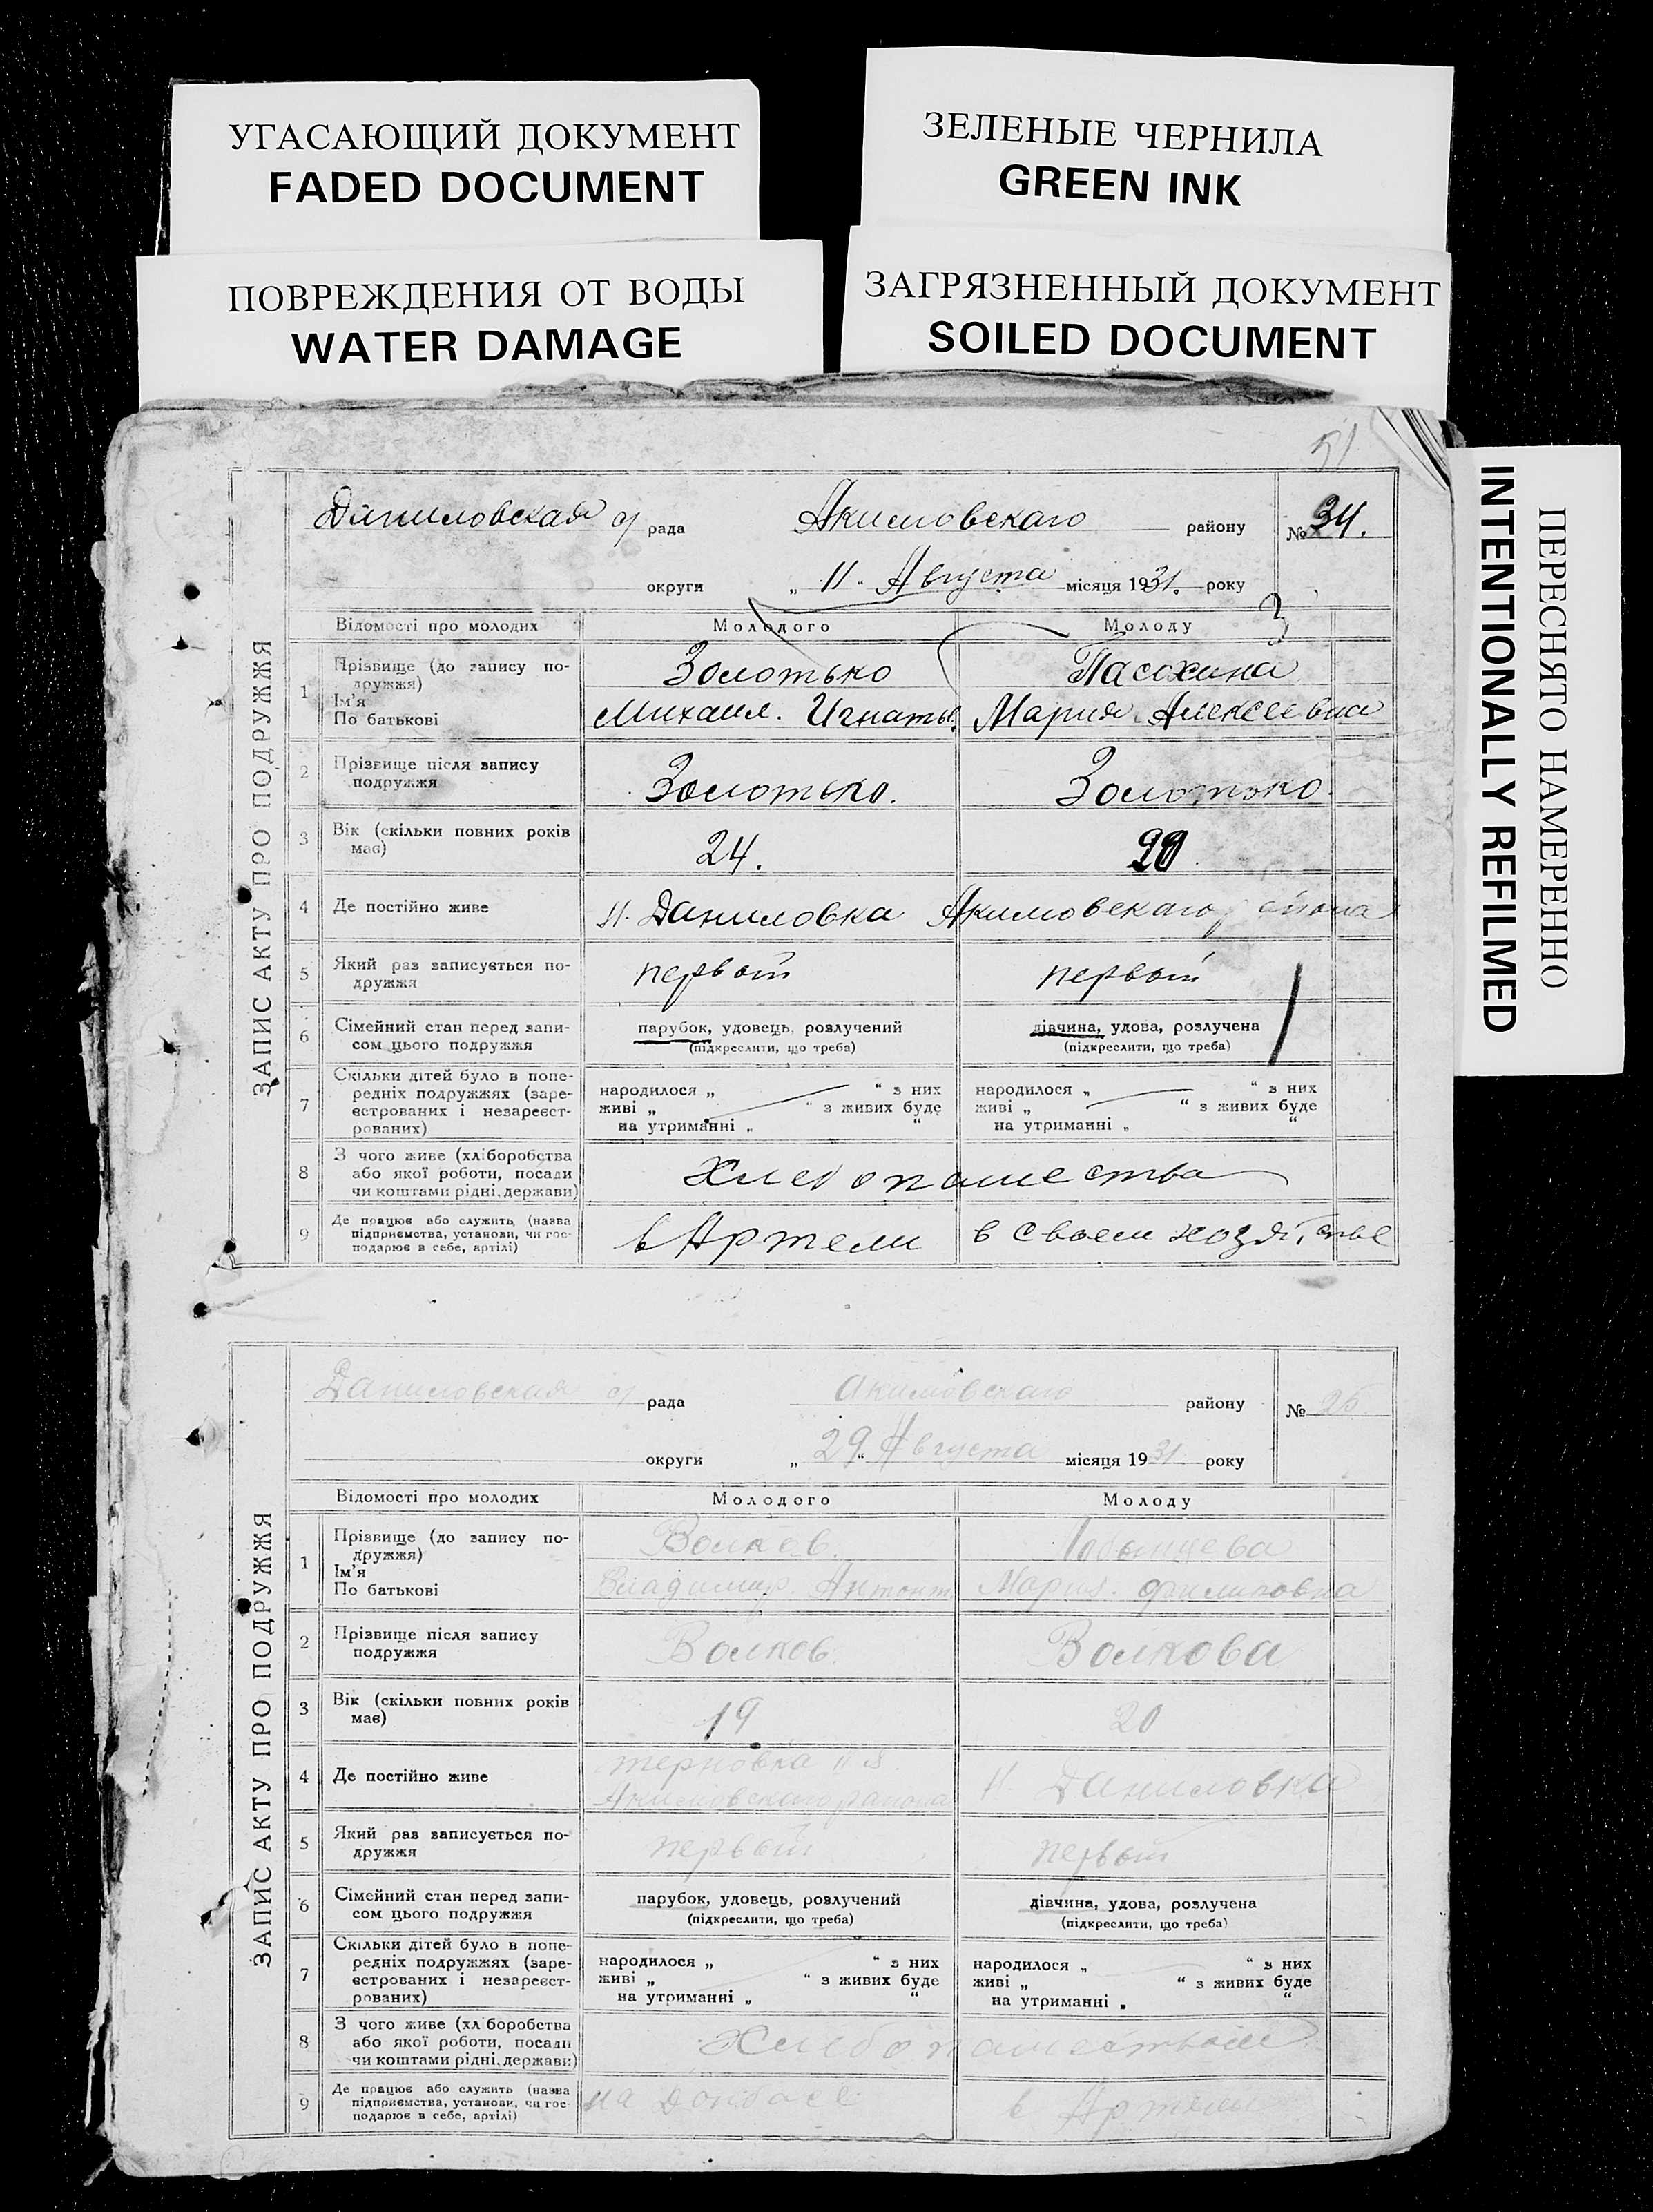 УГАСАЮЩИЙ ДОКУМЕНТ
FADED DOCUMENT
ЗЕЛЕНЫЕ ЧЕРНИЛА
GREEN INK
ПОВРЕЖДЕНИЯ ОТ ВОДЫ
WATER DAMAGE
ЗАГРЯЗНЕННЫЙ ДОКУМЕНТ
SOILED DOCUMENT
ПЕРЕСНЯТО НАМЕРЕННО
INTENTIONALLY REFILMED
51
ЗАПИС АКТУ ПРО ПОДРУЖЖЯ
Даниловская с/ рада Акимовскаго району № 34.
округи „ 11 " Августа місяця 1931. року
Відомості про молодих Молодого Молоду
1 Прізвище (до запису подружжя) Золотько
Ім'я
По батькові Михаил. Мария Алексеевна
2 Прізвище після запису подружжя Золотько. Золотько.
3 Вік (скільки повних років має) 24.
4 Де постійно живе Н. Даниловка Акимовскаго района
5 Який раз записується подружжя первый первый
6 Сімейний стан перед записом цього подружжя парубок, удовець, розлучений дівчина, удова, розлучена
(підкреслити, що треба) (підкреслити, що треба)
7 Скільки дітей було в попередніх подружжях (зареєстрованих і незареєстрованих)
народилося „ “ з них народилося „ “ з них
живі „ “ з живих буде живі „ “ з живих буде
на утриманні „ “ на утриманні „ “
8 З чого живе (хліборобства або якої роботи, посади чи коштами рідні, держави)
9 Де працює або служить (назва підприємства, установи, чи господарює в себе, артілі) в Артели в своем
ЗАПИС АКТУ ПРО ПОДРУЖЖЯ
Даниловская с/ рада Акимовскаго району №
округи „ 29 “ Августа місяця 1931. року
Відомості про молодих Молодого Молоду
1 Прізвище (до запису подружжя) Волков.
Ім'я
По батькові Владимир Мария. Филиповна
2 Прізвище після запису подружжя Волков. Волкова
3 Вік (скільки повних років має) 19 20
4 Де постійно живе терновка Акимовскаго района Н. Даниловка
5 Який раз записується подружжя первый первый
6 Сімейний стан перед записом цього подружжя парубок, удовець, розлучений дівчина, удова, розлучена
(підкреслити, що треба) (підкреслити, що треба)
7 Скільки дітей було в попередніх подружжях (зареєстрованих і незареєстрованих)
народилося „ “ з них народилося „ “ з них
живі „ “ з живих буде живі „ “ з живих буде
на утриманні „ “ на утриманні „ “
8 З чого живе (хліборобства або якої роботи, посади чи коштами рідні, держави) Хлебопашеством
9 Де працює або служить (назва підприємства, установи, чи господарює в себе, артілі) на Донбасе в Артели